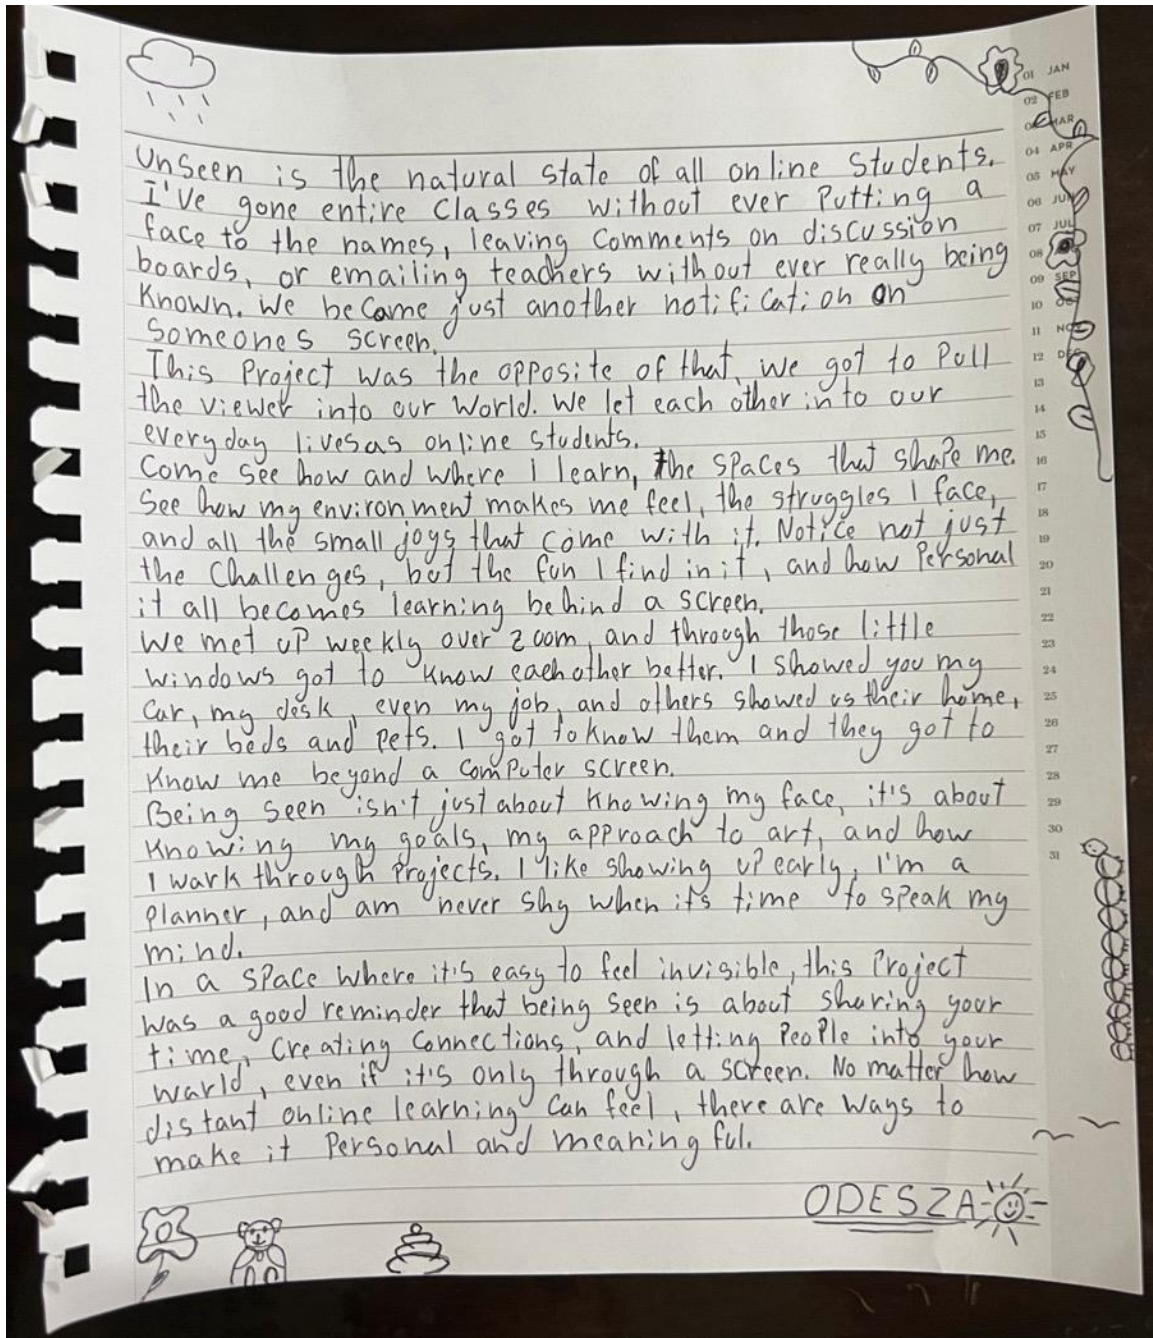 01 JAN
02 FEB
MAR
04 APR
05 MAY
06 JUN
07 JUL
08
09 SEP
10
11 NOV
12 DEC
13
14
15
16
17
18
19
20
21
22
23
24
25
26
27
28
29
30
31
Unseen is the natural state of all online students.
I've gone entire classes without ever putting a
face to the names, leaving comments on discussion
boards, or emailing teachers without ever really being
known. We became just another notification on
someones screen.
This project was the opposite of that, we got to pull
the viewer into our world. We let each other into our
everyday lives as online students.
Come see how and where i learn, the spaces that shape me.
See how my environment makes me feel, the struggles I face,
and all the small joys that come with it. Notice not just
the challenges, but the fun I find in it, and how personal
it all becomes learning behind a screen.
We met up weekly over zoom, and through those little
windows got to know each other better. I showed you my
car, my desk, even my job, and others showed us their home,
their beds and pets. I got to know them and they got to
know me beyond a computer screen.
Being seen isn't just about knowing my face, it's about
knowing my goals, my approach to art, and how
I work through projects. I like showing up early, I'm a
planner, and am never shy when it's time to speak my
mind.
In a space where it's easy to feel invisible, this project
was a good reminder that being seen is about sharing your
time, creating connections, and letting people into your
world, even if it's only through a screen. No matter how
distant online learning can feel, there are ways to
make it personal and meaningful.
ODESZA